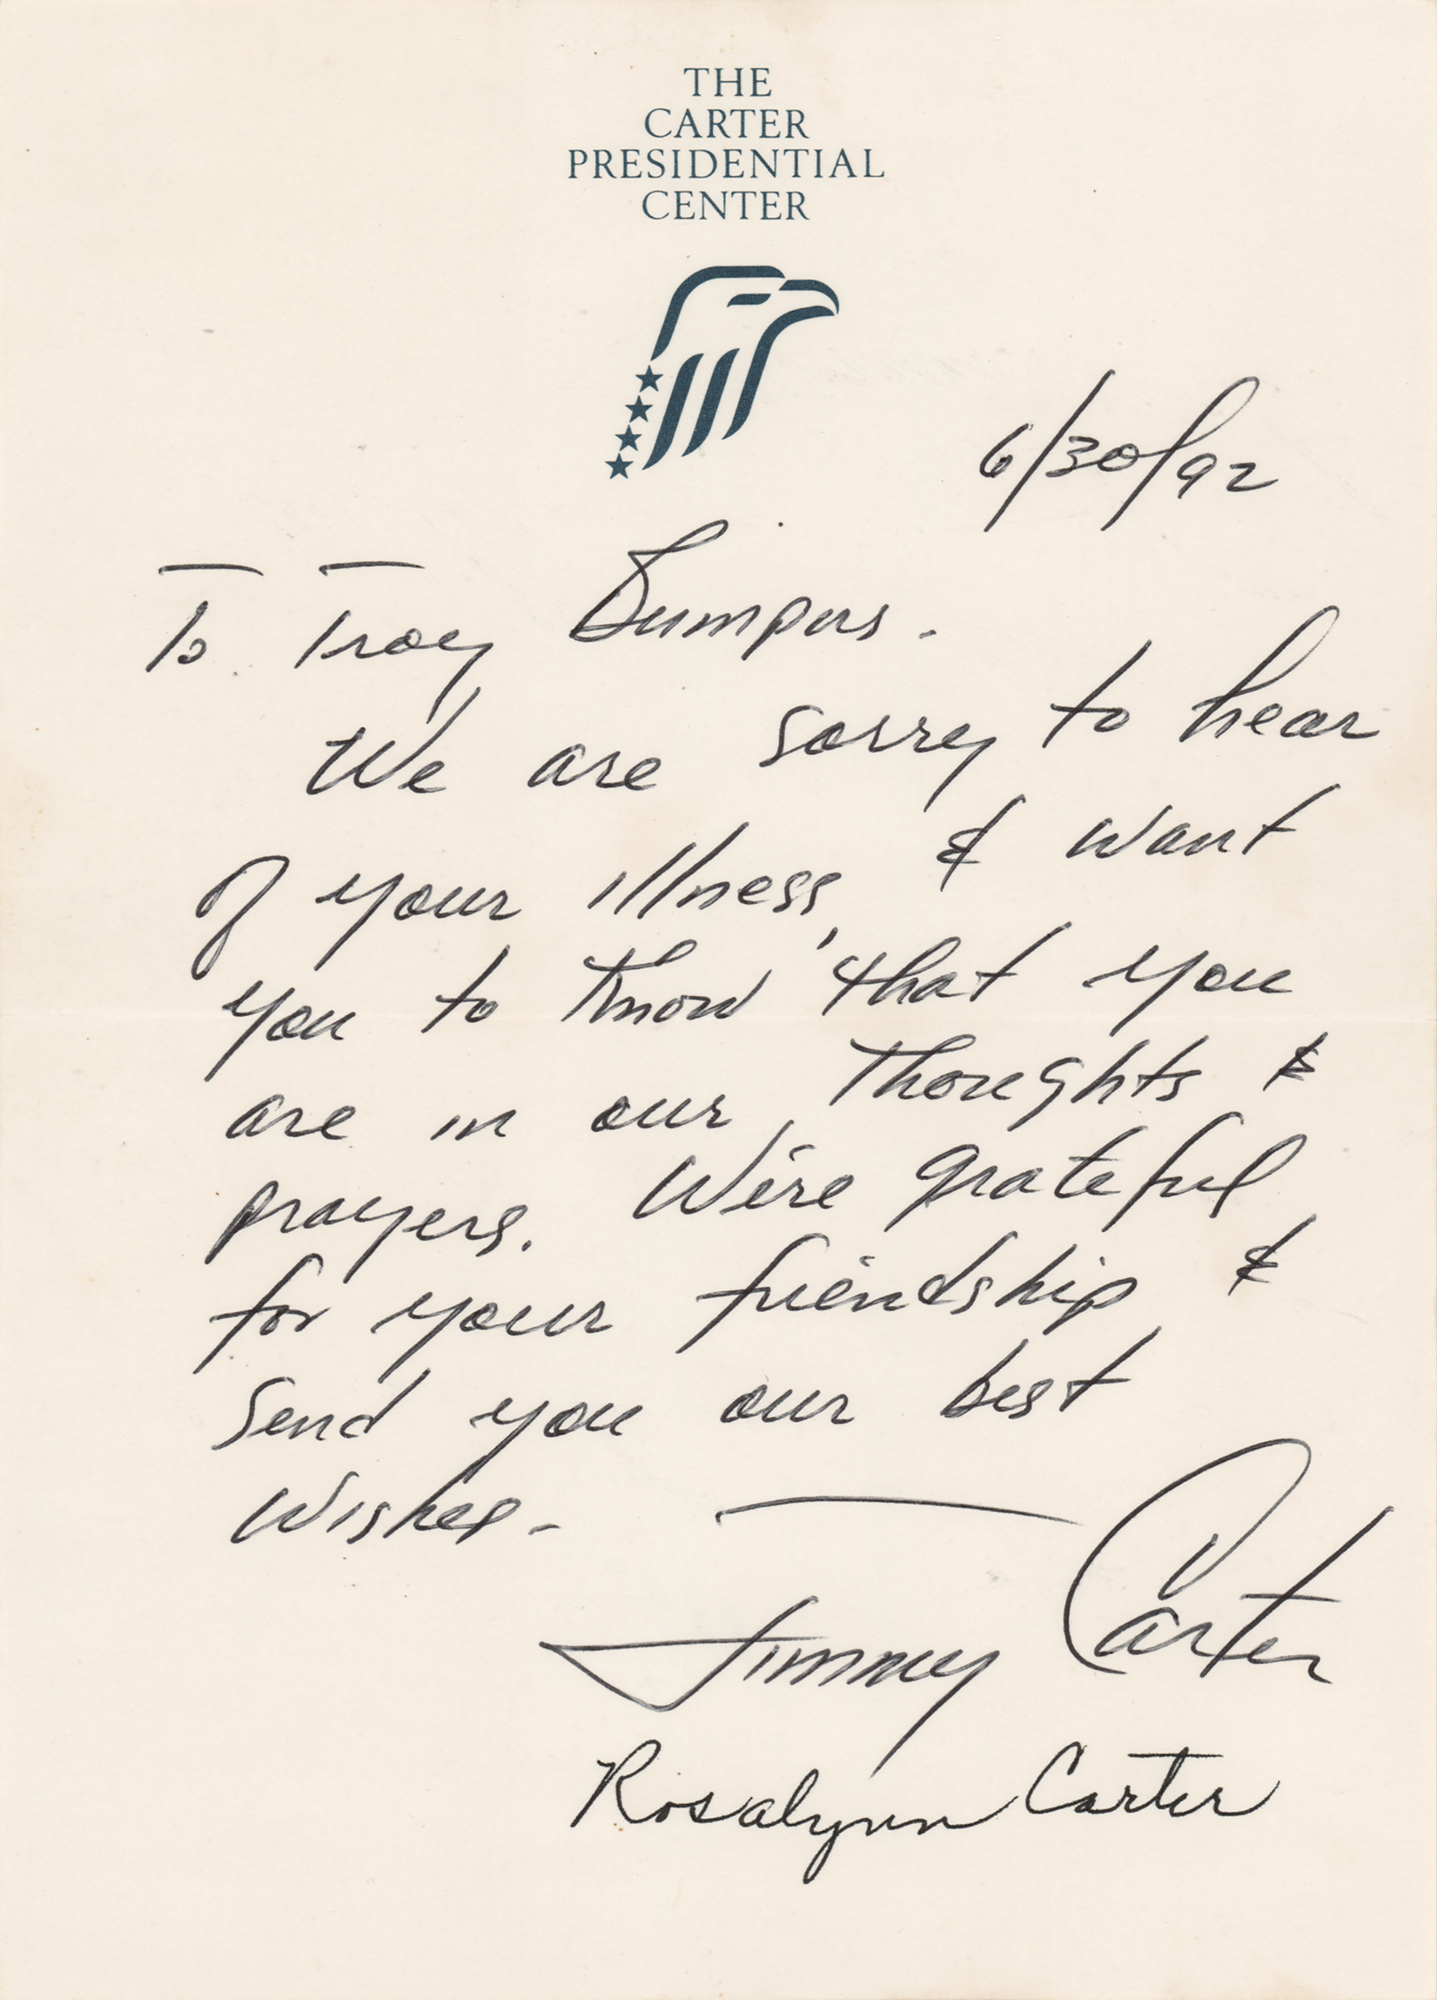 THE
CARTER
PRESIDENTIAL
CENTER
6/30/92
To Troy Bumpus -
We are sorry to hear
of your illness, & want
you to know that you
are in our thoughts &
prayers. We're grateful
for your friendship &
send you our best
wishes -
Jimmy Carter
Rosalynn Carter